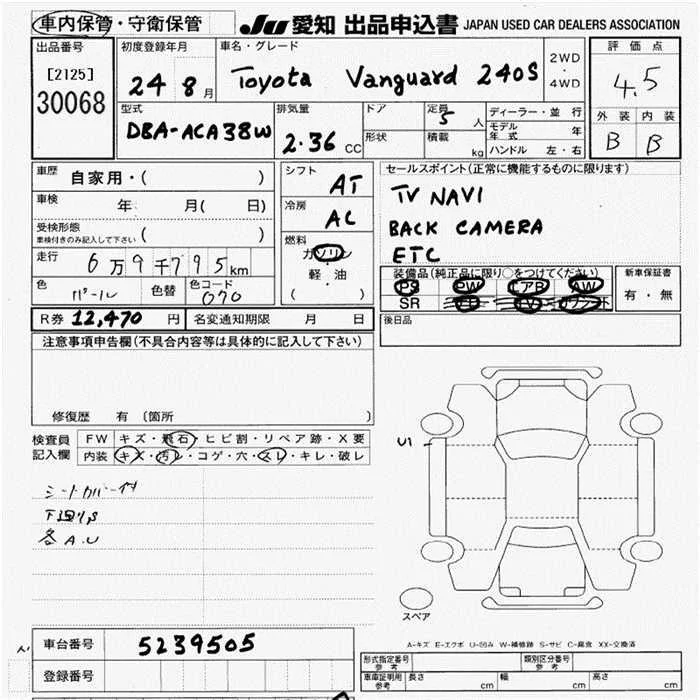 車内保管・守衛保管 JU 愛知 出品申込書 JAPAN USED CAR DEALERS ASSOCIATION
出品番号 初度登録年月 車名・グレード 2WD・4WD 評価点
[2125] 30068 24 8月 Toyota Vanguard 240S 4.5
型式 排気量 ドア 定員 5人 ディーラー・並行 外装 内装
DBA-ACA38W 2.36 CC 形状 積載 kg モデル年式 年 B B
ハンドル 左・右
車歴 自家用・( ) シフト AT セールスポイント(正常に機能するものに限ります)
車検 年 月( 日) 冷房 AC TV NAVI
受検形態 車検付きのみ記入して下さい ( ) BACK CAMERA
走行 6万9千795km 燃料 ガソリン・軽油 ( ) ETC
色 パール 色替 色コード 070 装備品(純正品に限り○をつけてください) 新車保証書
PS PW エアB AW 有・無
SR TV
R券 12,470円 名変通知期限 月 日 後日品
注意事項申告欄(不具合内容等は具体的に記入して下さい)
修復歴 有 〔箇所 〕
検査員記入欄 FW キズ・飛石・ヒビ割・リペア跡・X要
内装 キズ・汚レ・コゲ・穴・スレ・キレ・破レ
U1
シートカバー付
下廻りS
各A.U
スペア
A-キズ E-エクボ U-凹み W-補修跡 S-サビ C-腐食 XX-交換済
車台番号 5239505
登録番号
形式指定番号 参考 類別区分番号 参考
車庫証明用 参考 長さ cm 幅 cm 高さ cm